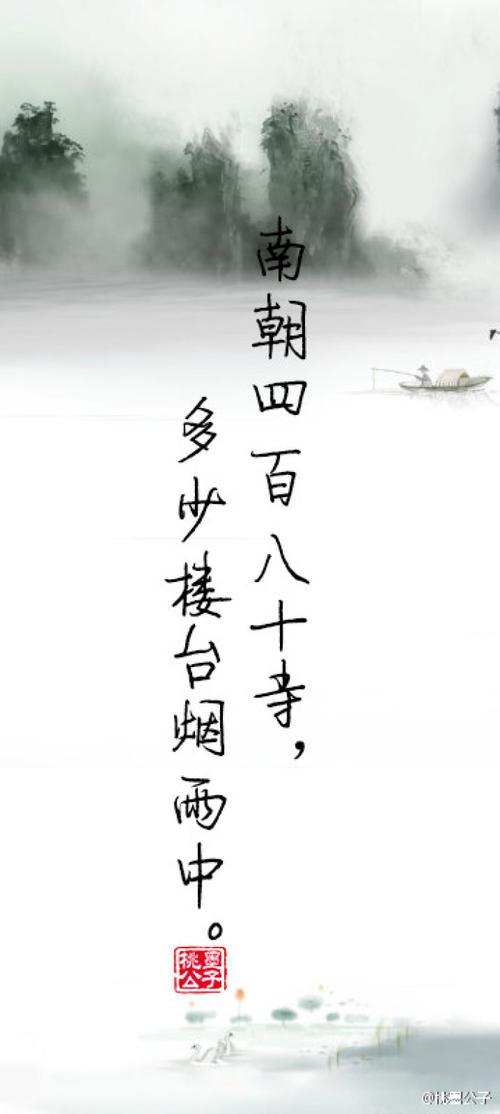 南朝四百八十寺，
多少楼台烟雨中。
桃墨公子
@桃墨公子